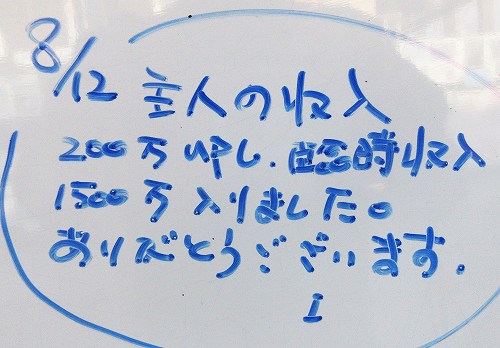 8/12 主人の収入
200万UPし、臨時収入
1500万入りました。
ありがとうございます。
I